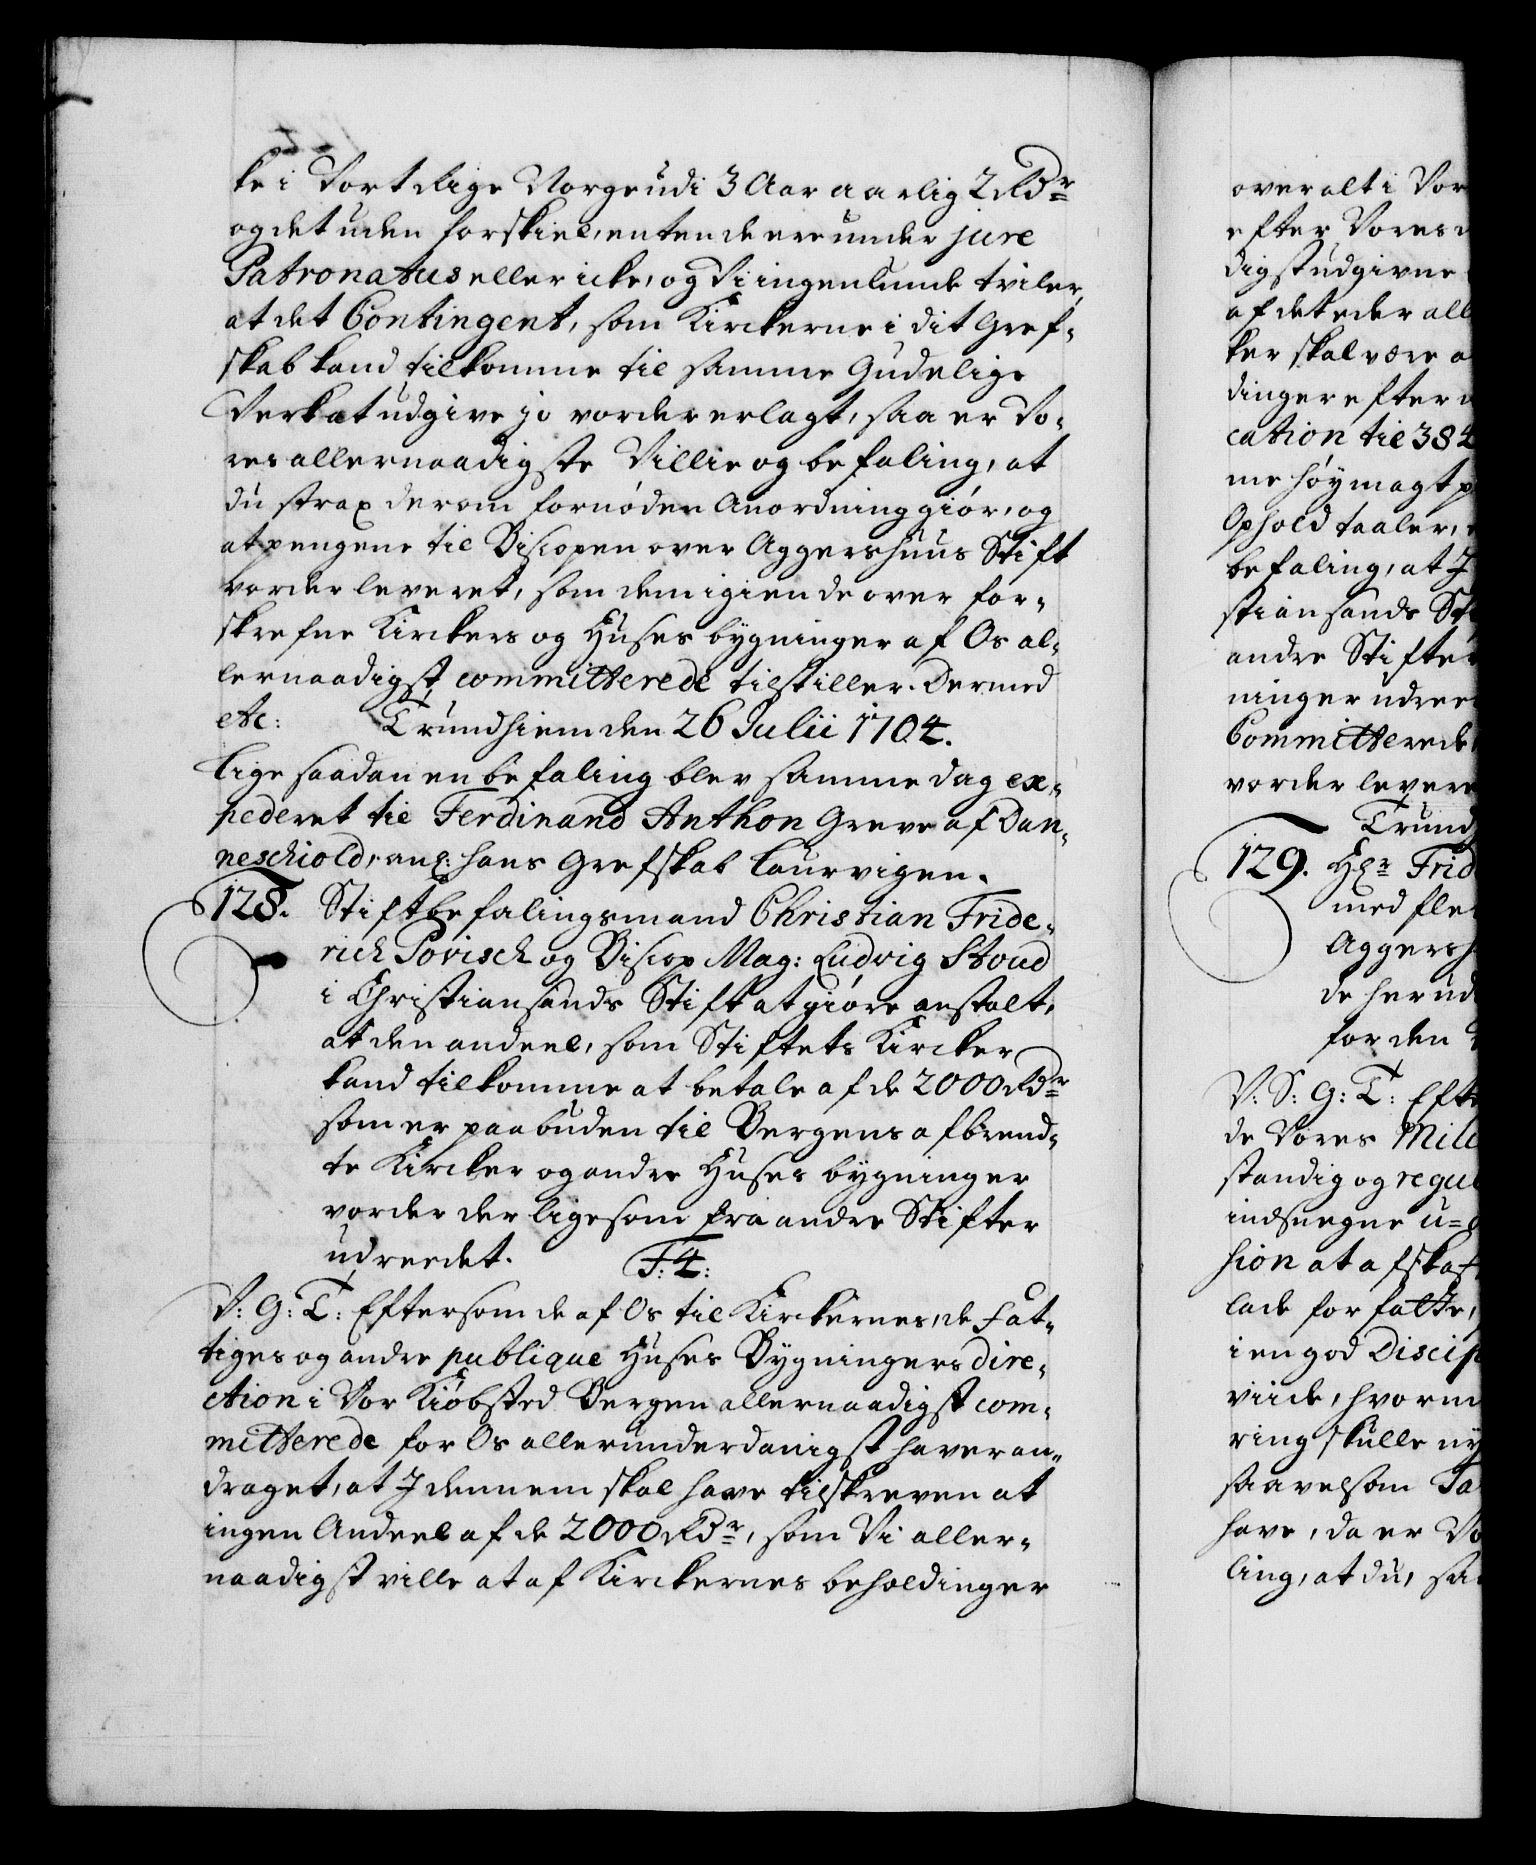 ke i Vort Rige Norge udi 3 Aar aarlig 2 Rdr
og det uden forskiel, enten de ere under jure
Patronatus eller icke, og Vi ingenlunde tviler,
at det Contingent, som Kirckerne i dit Gref-
skab kand tilkomme til samme Gudelige
Verk at udgive jo vorder erlagt, saa er Vo-
res allernaadigste Villie og befaling, at
du strax derom fornøden Anordning giør, og
at pengene til Biscopen over Aggershuus Stift
vorder leveret, som dem igien de over for-
skrefne Kirckers og Huses bygninger af Os al-
lernaadigst committerede tilstiller. Dermed
etc: Trundhiem den 26 Julii 1704.
Lige saadan en befaling blev samme dag ex-
pederet til Ferdinand Anthon Greve af Dan-
neschiold, anl: hans Grefskab Laurvigen.
128. Stiftbefalingsmand Christian Fride-
rich Povisch og Biscop Mag: Ludvig Stoud
i Christiansands Stift at giøre anstalt,
at den andeel, som Stiftets Kircker
kand tilkomme at betale af de 2000 Rdr
som er paabuden til Bergens afbrend-
te Kircker og andre Huses bygninger
vorder der ligesom fra andre Stifter
udreedet. F: 4:
V: G: T: Eftersom de af Os til Kirckernes, de Fat-
tiges og andre publique Huses Bygningers dire-
ction i Vor Kiøbsted Bergen allernaadigst com-
mitterede for Os allerunderdanigst haver an-
draget, at I dennem skal have tilskreven at
ingen Andeel af de 2000 Rdr, som Vi aller-
naadigst ville at af Kirckernes beholdinger
over alt i Vor
efter Vores
digst udgivne
af det eder all
ker skal være
dinger efter
cation til 384
me høymagt
Ophold taaler,
befaling, at I
stiansands Sti
andre Stifter
ninger udree
Committerede
vorder levere
Trund
129. Hr Frid
med fle
Aggersh
de herud
for den
V: S: G: T: Eft
de Vores Mile
standig og regul
indsnegne u-
sion at afskaf
lade forfatte,
i en god Discip
viide, hvorm
ring skulle ny
saavelsom Ta
have, da er Vo
ling, at du, sa